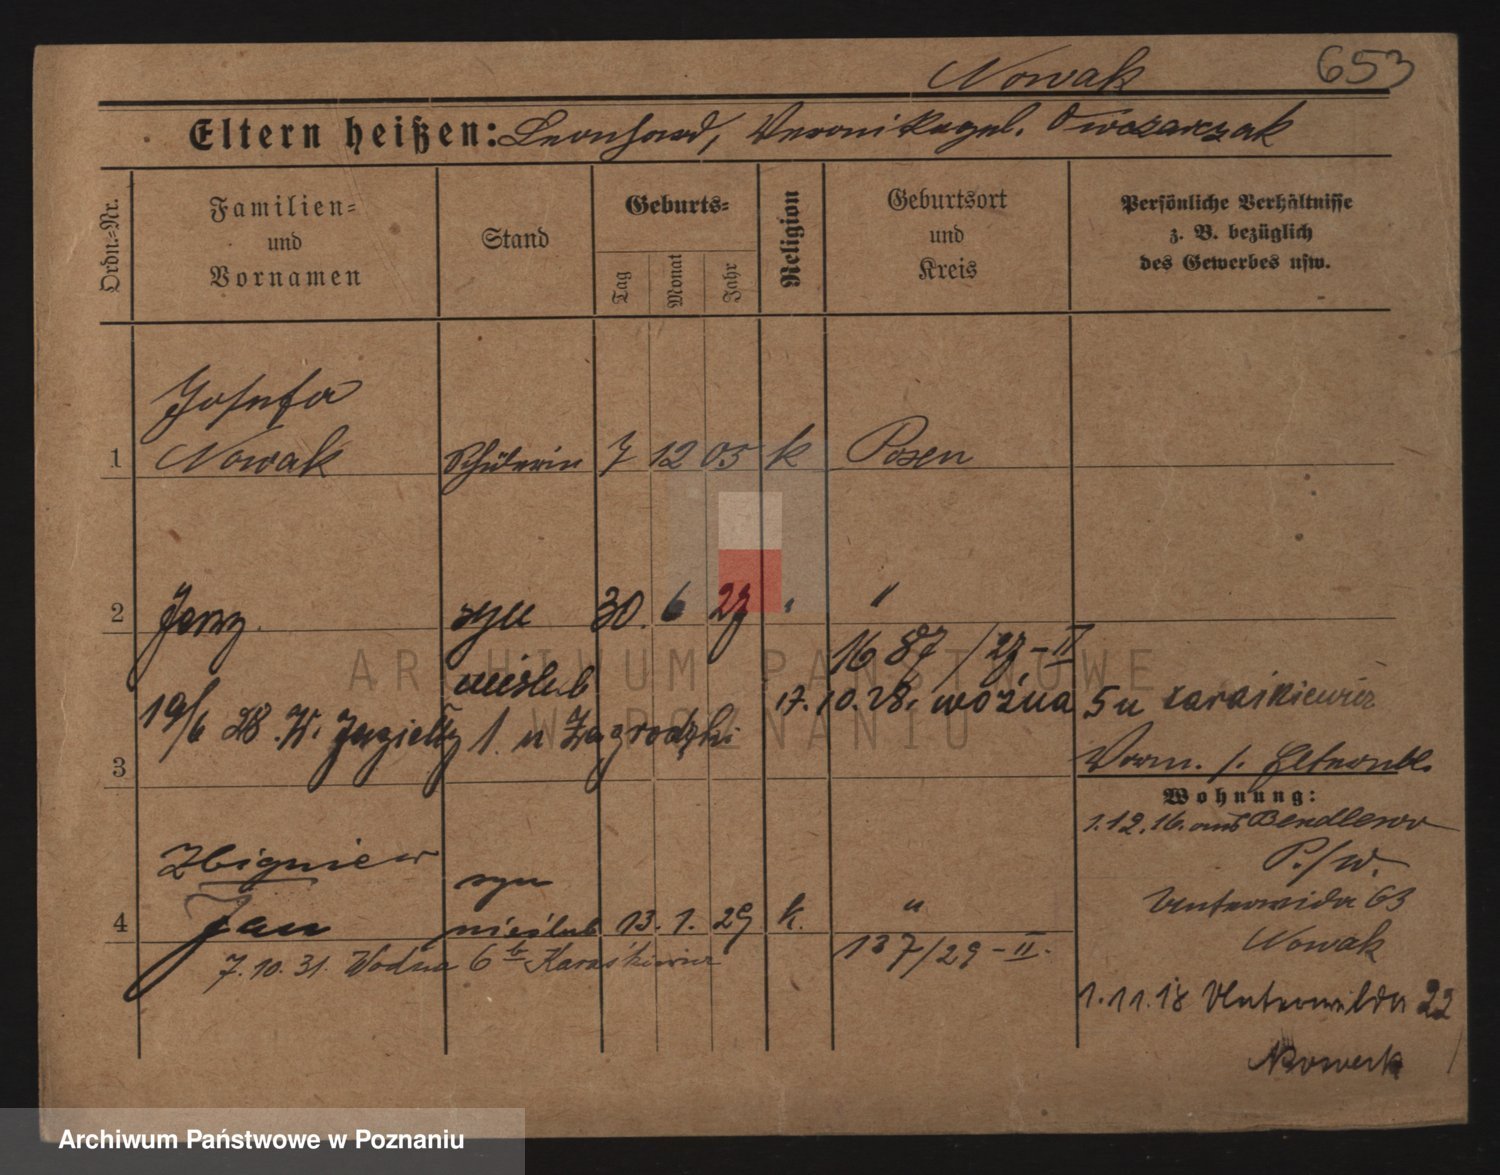 Nowak 653
Eltern heißen: Leonhard, Veronika geb. Owczarczak
Ordn.-Nr.
Familien- und Vornamen
Stand
Geburts-
Tag
Monat
Jahr
Religion
Geburtsort und Kreis
Persönliche Verhältnisse
z. B. bezüglich
des Gewerbes usw.
Josefa
1 Nowak Schülerin 7 12 05 k Posen
2 Jerzy. syn 30. 6 27 " "
nieślub 1687/27-II
17.10.28. woźna 5 u Karaśkiewicz
19/6 28 . u Zagrodzki
3 Vorm. s. Elternbl.
Wohnung:
1.12.16. aus Bendlewo
P./W.
Zbigniew syn
Unterwilda 63
4 Jan nieślub 13. 1. 29 k. "
Nowak
7.10.31. Wodna 6 b Karaśkiewicz 137/29-II.
1.11.18 Unterwilda 22
Nowak
ARCHIWUM PAŃSTWOWE
W POZNANIU
Archiwum Państwowe w Poznaniu